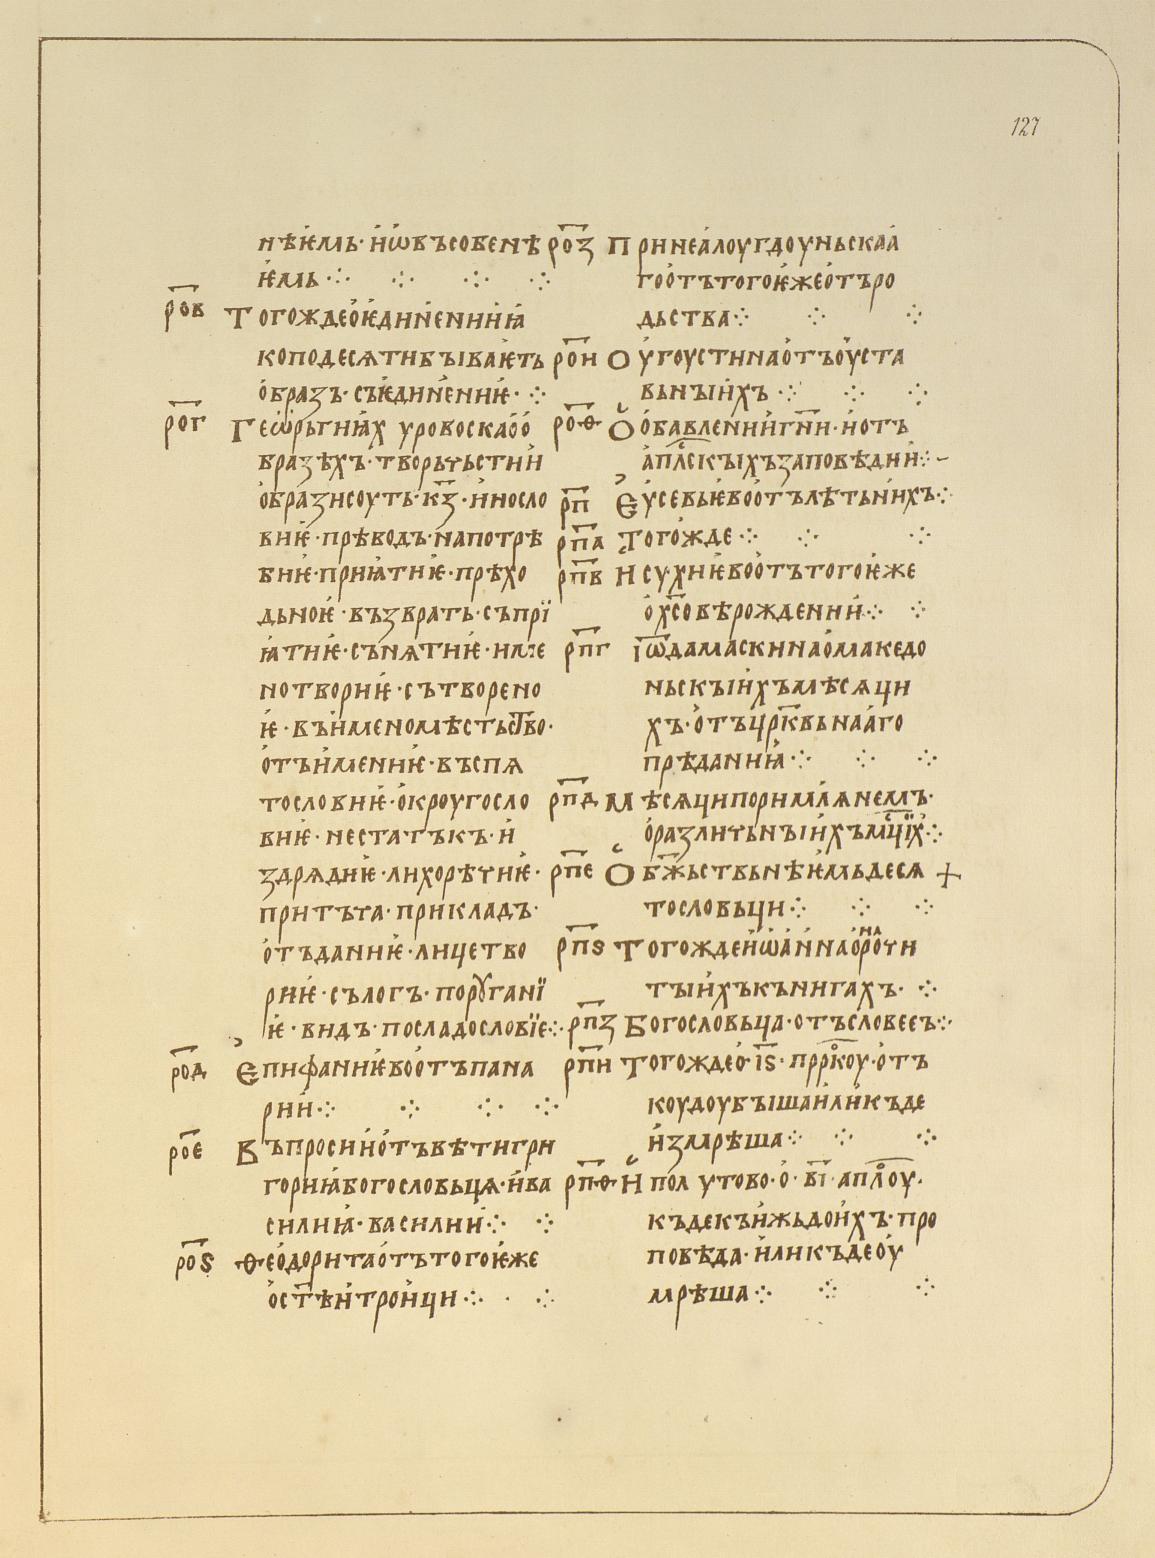 127
нѣѥмь· и҆ѡ҆въсобенѣ
ѥмь ⁘ ⁘ ⁘ ⁘
ро҃в Тогождео҆ѥдинѥнииꙗ
коподесѧтибꙑваѥть
о҆бразъ· съѥдинѥниѥ· ⁘
ро҃г Гео҆рьгиꙗ хуровоскао҆о҆
бразѣхъ· творьчьстии
о҆бразисоуть· к҃з· и҆носло
виѥ· прѣводъ· напотрѣ
биѥ· приꙗтиѥ· прѣхо
дьноѥ· възвратъ· съпрї
ꙗтиѥ· сънѧтиѥ· име
нотвориѥ· сътворено
ѥ· въи҆меномѣстьс҃тво·
о҆тъи҆мениѥ· въспѧ
тословиѥ· о҆кроугосло
виѥ· нестатъкъ· и҆
зарѧдиѥ· лихорѣчиѥ·
притъча· прикладъ·
о҆тъданиѥ· лицетво
риѥ· сълогъ· порꙋганї
ѥ· видъ· посладословїе ⁘
ро҃д Епифаниѥвоо҆тъпана
рии҆ ⁘ ⁘ ⁘ ⁘
ро҃е Въпросии҆о҆тъвѣтигри
гориꙗбогословьцѧ· и҆ва
силиꙗ· василии҆ ⁘ ⁘
ро҃ѕ Ѳео҆доритао҆тътогоѥже
о҆с҃тѣи҆трои҆ци ⁘ · ⁘
ро҃з Принеа҆лоугдоуньскаа҆
гоо҆тътогоѥжео҆търо
дьства ⁘ ⁘ ⁘
ро҃и Оу҆гоустинао҆тъоу҆ста
вьнꙑи҆хъ ⁘ ⁘ ⁘
ро҃ѳ О҆о҆бавлении҆г҃ни· и҆отъ
ап҃лскꙑхъзаповѣдии҆ ⁘
р҃п Еу҆севьѥвоо҆тълѣтьнꙑхъ ⁘
рп҃а Тогожде ⁘ ⁘ ⁘
рп҃в И҆сухиѥвоо҆тътогоѥже
о҆х҃совѣрождении҆ ⁘ ⁘
рп҃г Іѡ҃дамаскинао҆македо
ньскꙑи҆хъмѣсѧци
хъ· о҆тъцр҃квьнаа҆го
прѣданиꙗ ⁘ ⁘ ⁘
рп҃д Мѣсѧципоримлѧнемъ·
о҆различьнꙑи҆хъм҃цїх ⁘
рп҃е О҆б҃жьствьнѣѥмьдесѧ
тословьци ⁘ ⁘ ⁘
рп҃ѕ Тогождеи҆ѡ҆а҆ннао҆нарочи
тꙑи҆хъкънигахъ· ⁘
рп҃з Богословьца· отъсловесъ ⁘
рп҃и Тогождео҆· і҃ѕ· пррк҃оу· о҆тъ
коудоубꙑшаи҆ли҆къде
и҆змрѣша ⁘ ⁘ ⁘
рп҃ѳ И҆полутово· о҆· в҃і· ап҃лоу·
къдекъи҆жьдои҆хъ· про
повѣда· и҆ликъдеоу҆
мрѣша ⁘ ⁘ ⁘